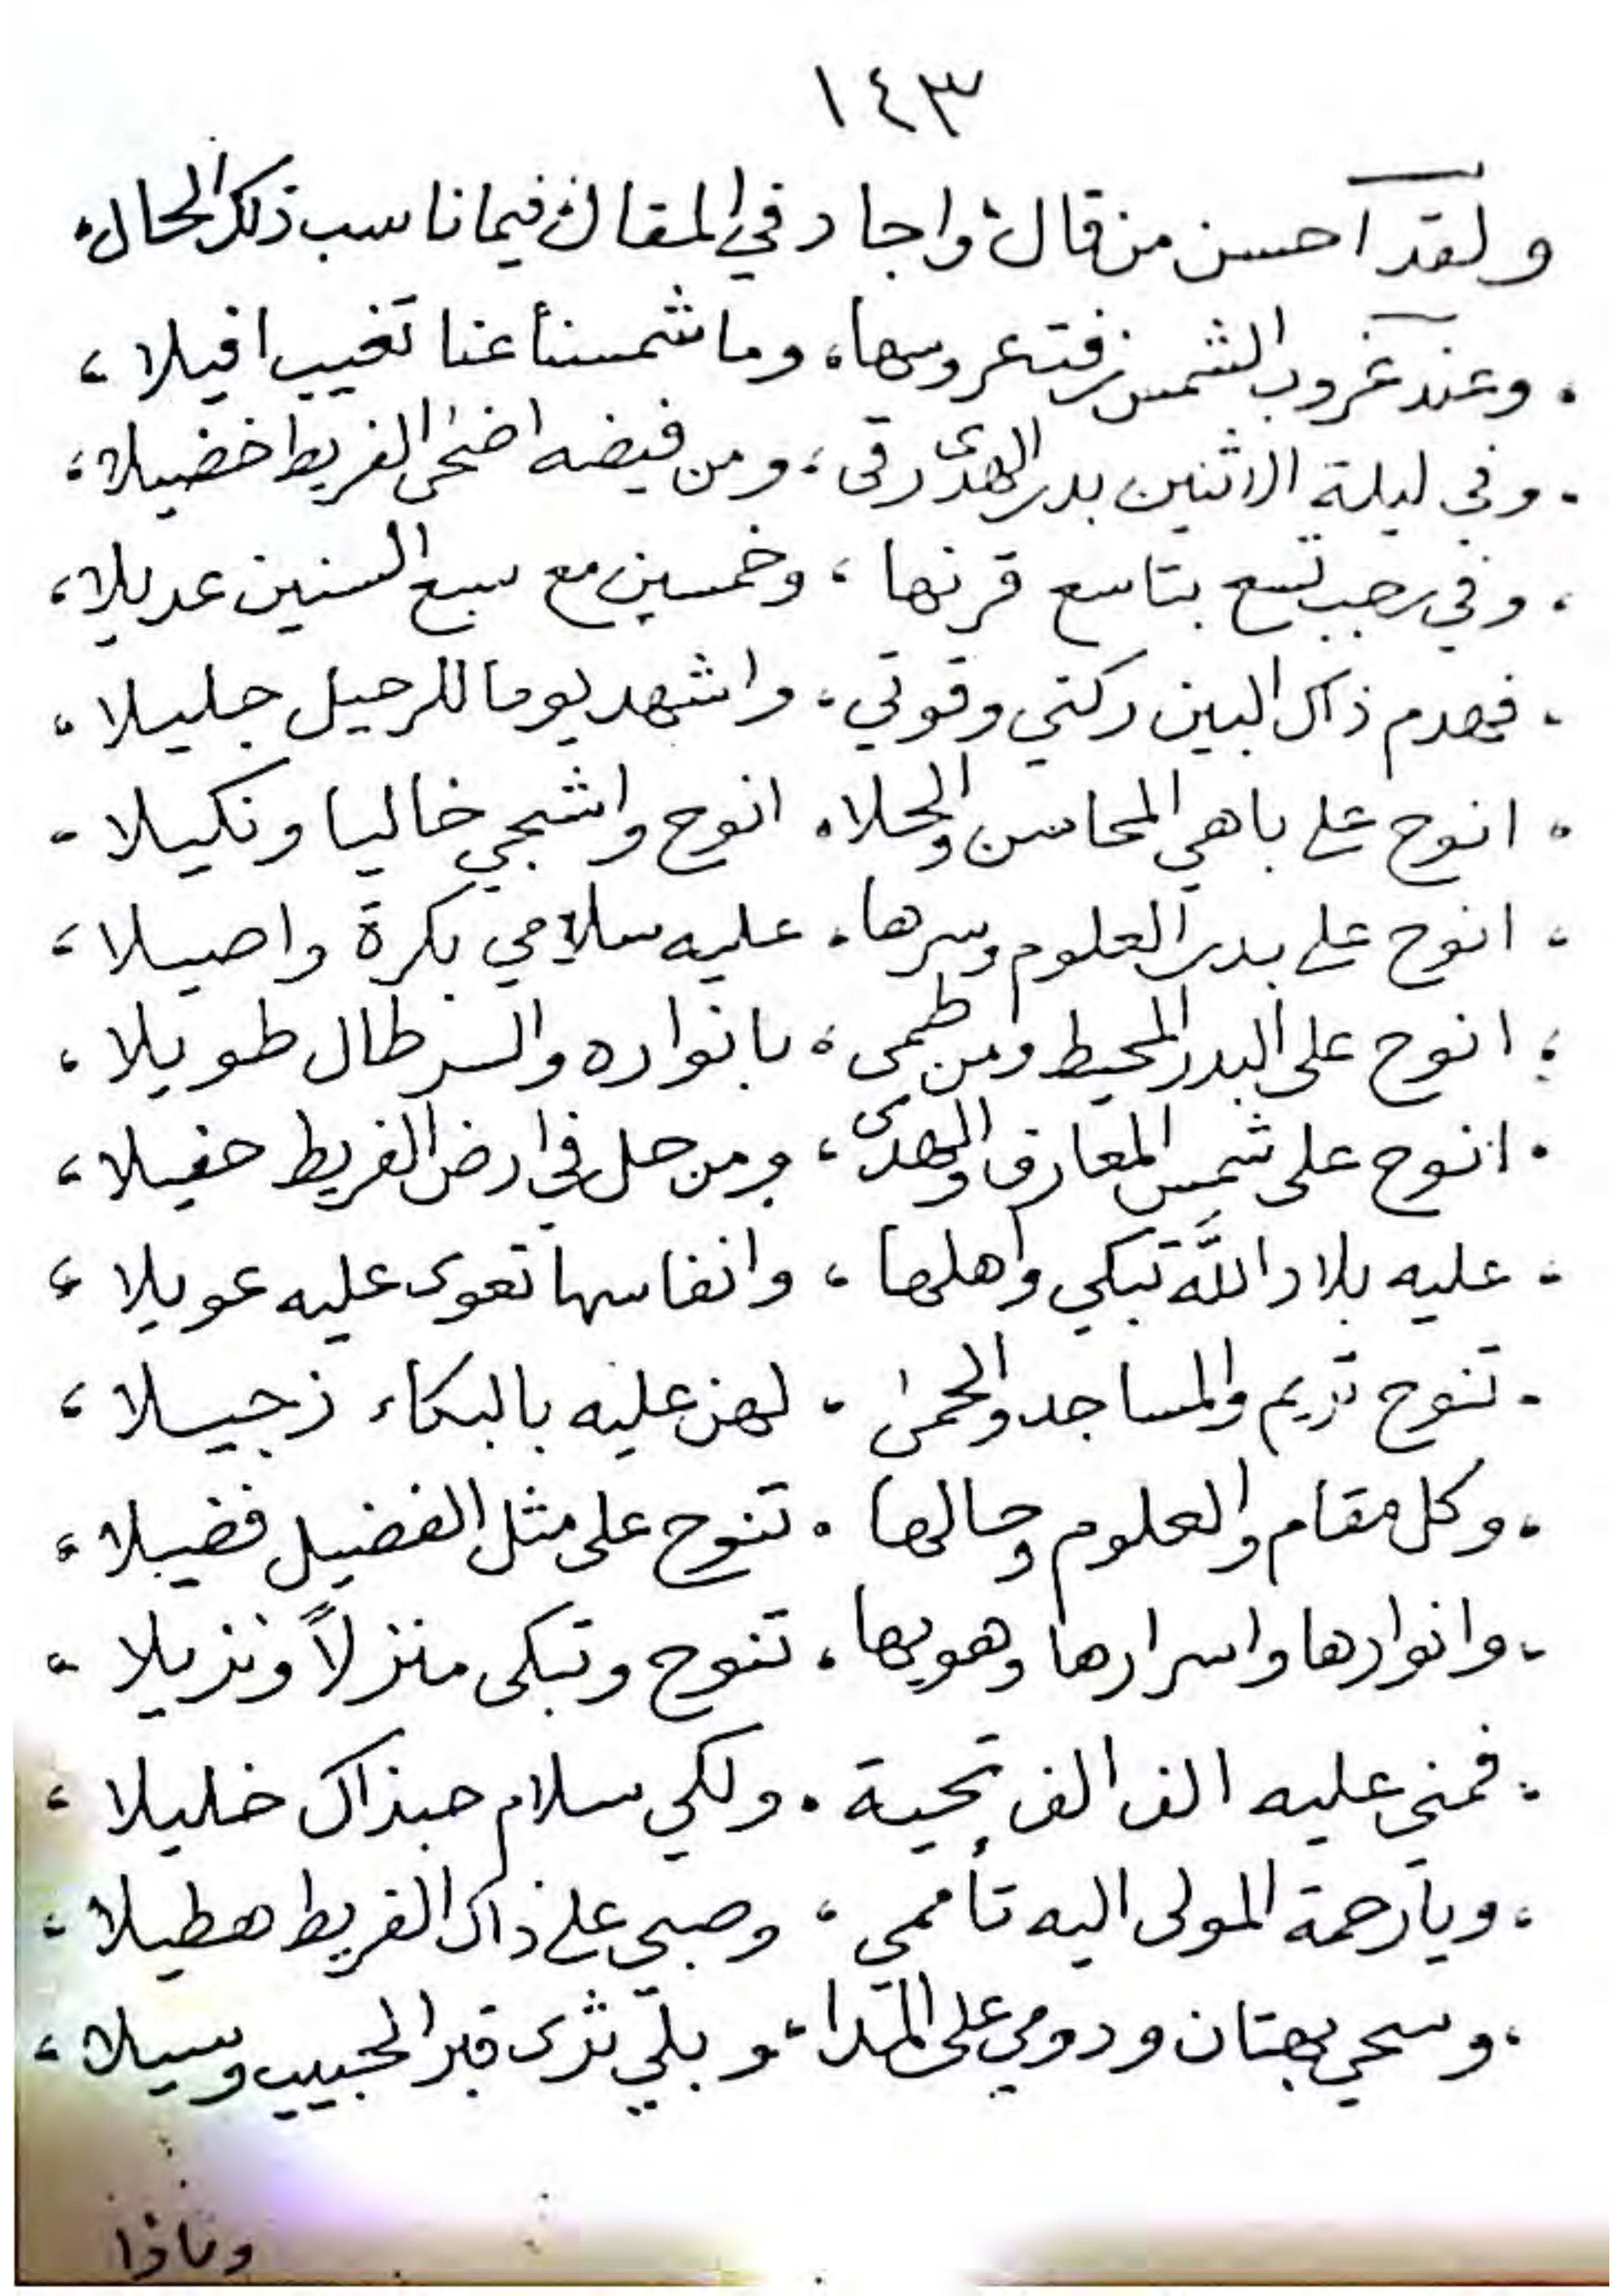 ١٤٣
ولقد احسن من قال، واجاد في المقال، فيما ناسب ذلك الحال،
، وعند غروب الشمس زفت عروسها، وما شمسنا عنا تغيب افيلا،
، وفي ليلة الاثنين بدر الهدى رقى، ومن فيضه اضحى الفريط خضيلا،
، وفي رجب تسع بتاسع قرنها، وخمسين مع سبع السنين عديلا،
، فهدم ذاك البين ركني وقوتي، واشهد يوما للرحيل جليلا،
، انوح على باهي المحاسن والحلا، انوح واشجي خاليا ونكيلا،
، انوح على بدر العلوم وسرها، عليه سلامي بكرة واصيلا،
، انوح على البدر المحيط ومن طمى، بانواره والسر طال طويلا،
، انوح على شمس المعارف والهدى، ومن حل في ارض الفريط حفيلا،
، عليه بلاد اللّه تبكي واهلها، وانفاسها تعوى عليه عويلا،
، تنوح تريم والمساجد والحمى، لهن عليه بالبكاء زجيلا،
، وكل مقام والعلوم وحالها، تنوح على مثل الفضيل فضيلا،
، وانوارها واسرارها وهويها، تنوح وتبكى منزلاً ونزيلا،
، فمني عليه الف الف تحية، ولكي سلام حبذاك خليلا،
، ويا رحمة المولى اليه تأممي، وصبي على ذاك الفريط هطيلا،
، وسحي بهتان ودومي على المدا، وبلّي ثرى قبر الحبيب وسيلا،
وماذا